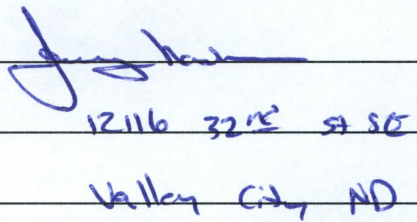 12116 32nd St SE
Valley City ND